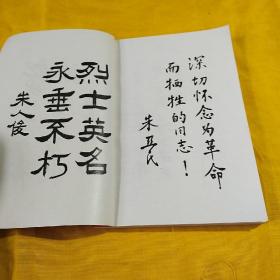 烈士英名
永垂不朽
朱人俊
深切怀念为革命
而牺牲的同志！
朱亚民